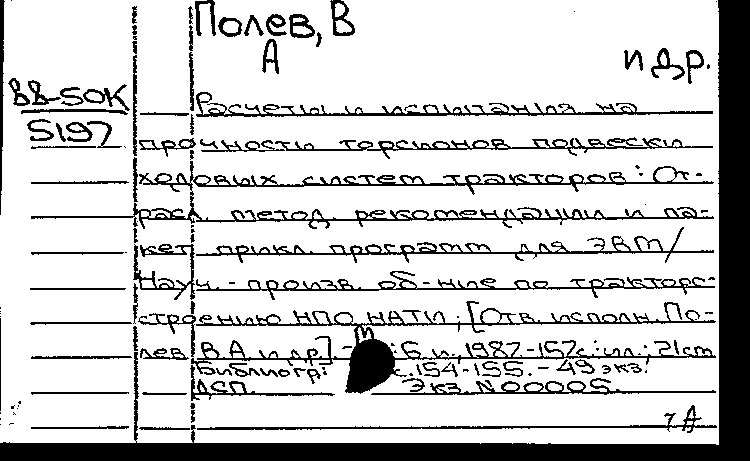 Полев, В
А
и др.
88-50К
5197
Расчеты и испытания на
прочность торсионов подвески
ходовых систем тракторов: От-
расл. метод. рекомендации и па-
кет прикл. программ для ЭВМ/
Науч.-произв. об-ние по тракторо-
строению НПО НАТИ; [Отв. исполн. По-
лев В.А и др.].-М.: Б.и., 1987-157с.:ил.; 21cm
Библиогр: с.154-155.-49 экз.
ДСП. Экз. N 00005.